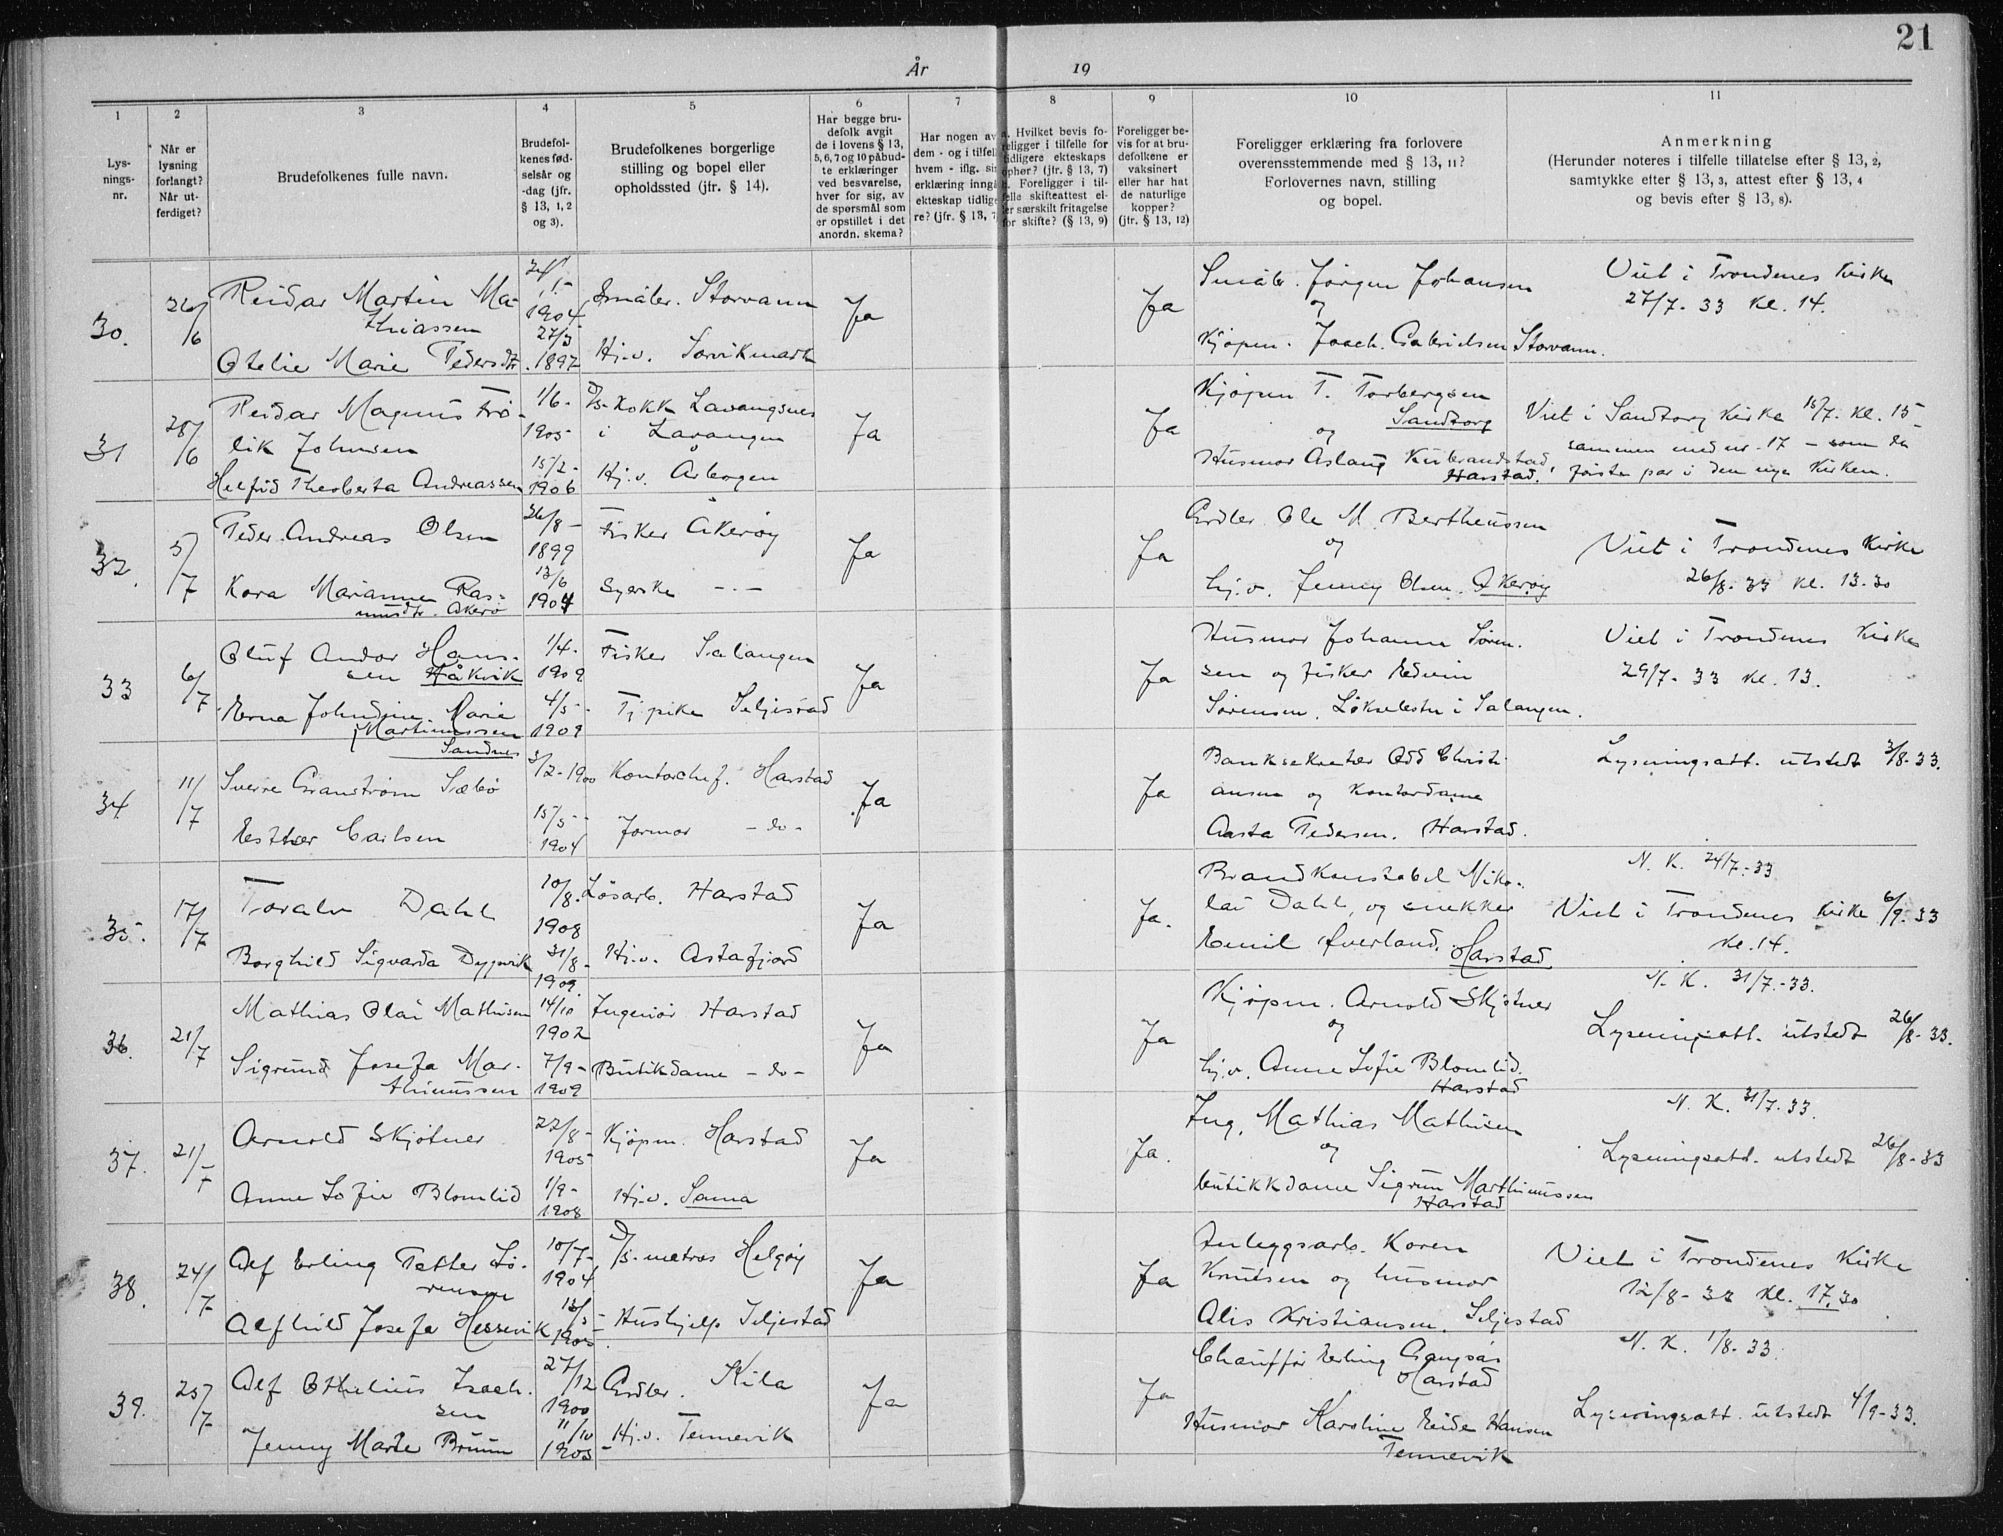 21
År 19
1 2 3 4 5 6 7 8 9 10 11
Lys-
nings-
nr.
Når er
lysning
forlangt?
Når ut-
ferdiget?
Brudefolkenes fulle navn.
Brudefol-
kenes fød-
selsår og
-dag (jfr.
§ 13, 1, 2
og 3).
Brudefolkenes borgerlige
stilling og bopel eller
opholdssted (jfr. § 14).
Har begge bru-
defolk avgit
de i lovens § 13,
5, 6, 7 og 10 påbud-
te erklæringer
ved besvarelse,
hver for sig, av
de spørsmål som
er opstillet i det
anordn. skema?
Har nogen av
dem - og i tilfell
hvem - iflg. sin
erklæring inngå
ekteskap tidlige
re? (jfr. § 13, 7
a. Hvilket bevis fo-
religger i tilfelle for
tidligere ekteskaps
ophør? (jfr. § 13, 7)
b. Foreligger i til-
felle skifteattest el-
ler særskilt fritagelse
for skifte? (§ 13, 9)
Foreligger be-
vis for at bru-
defolkene er
vaksinert
eller har hat
de naturlige
kopper?
(jfr. § 13, 12)
Foreligger erklæring fra forlovere
overensstemmende med § 13, 11?
Forlovernes navn, stilling
og bopel.
Anmerkning
(Herunder noteres i tilfelle tillatelse efter § 13, 2,
samtykke efter § 13, 3, attest efter § 13, 4
og bevis efter § 13, 8).
30. 26/6
Reidar Martin Ma-
thiassen
1904
Småbr. Storvann
Ja
Otelie Marie Pedersdtr.
27/5
1897
Hj.v. Sørvikmark
Ja
Småbr. Jørgen Johansen
og
Kjøpm. Joach. Gabrielsen Storvann.
Viet i Trondenes Kirke
27/7-33 kl. 14.
31 28/6
Reidar Magnus Frø-
lik Johnsen
1/6-
1905
D/S-kokk Lavangsnes
i Lavangen
Ja
Helfrid Theoberta Andreassen
15/2-
1906
Hj.v. Årbogen
Ja
Kjøpm T. Torbergsen
Sandtorg
og
Husmor Aslaug Kulbrandstad,
Harstad.
Viet i Sandtorg Kirke 15/7. kl. 15-
sammen med nr. 17 - som de
første par i den nye Kirken.
32. 5/7
Peder Andreas Olsen
26/8-
1899
Fisker Åkerøy
Ja
Kora Marianne Ras-
musdtr. Akerø
13/6
1904
Syerske - - -
Ja
Grdbr. Ole M. Bertheussen
og
hj.v. Jenny Olsen. Åkerøy
Viet i Trondenes Kirke
26/8-33 kl. 13.30
33 6/7
Oluf Andor Hans-
sen Håkvik
1/4-
1909
Fisker Salangen
Ja
Erna Johndine Marie
Martinussen
Sandnes
4/5-
1909
Tj.pike Seljestad
Ja
Husmor Johanne Søren-
sen og fisker Edvin
Sørensen, Løksebotn i Salangen.
Viet i Trondenes Kirke
29/7-33 kl. 13.
34 11/7
Sverre Granstrøm Sæbø
3/2-1900
Kontorchef. Harstad
Ja
Esther Carlsen
15/5-
1904
Jormor -do-
Ja
Banksekretær Odd Christi-
ansen og Kontordame
Aasta Pedersen. Harstad.
Lysningsatt. utstedt 3/8-33.
35. 17/7
Toralv Dahl
10/8.
1908
Løsarb. Harstad
Ja
Borghild Sigvarda Dypvik
31/8-
1909
Hj.v. Astafjord
Ja.
Brandkonstabel Niko-
lai Dahl, og snekker
Emil Øverland. Harstad
N. K. 24/7-33
Viet i Trondenes Kirke 6/9-33
kl. 14.
36. 21/7
Mathias Olai Mathisen
14/10
1902
Ingeniør Harstad
Ja
Sigrund Josefa Mar-
thinussen
7/9-
1909
Butikdame -do-
Ja
Kjøpm. Arnold Skjøtner
og
hj.v. Anne Sofie Blomlid.
Harstad
N. K. 31/7-33.
Lysningsatt. utstedt 26/8-33.
37. 21/7
Arnold Skjøtner
22/8-
1905
Kjøpm. Harstad
Ja
Anne Sofie Blomlid
1/9-
1908
Hj.v. Sama
Ja.
Ing. Mathias Mathisen
og
butikkdame Sigrun Marthinussen
Harstad
N. K. 31/7-33.
Lysningsatt. utstedt 26/8-33
38. 24/7
Alf Erling Petter Sø-
rensen
10/7-
1904
D/S-matros Helgøy
Ja
Alfhild Josefa Hessevik
1905
Hushjelp Seljestad
Ja
Anleggsarb. Koren
Knutsen og husmor
Alis Kristiansen. Seljestad
Viet i Trondenes Kirke
12/8-33 kl. 17.30
39. 25/7
Alf Othelius Isach-
sen
27/12
1900
Grdbr. Kila
Ja
Jenny Marie Bruun
11/10
1905
Hj.v. Tennevik
Ja
Chauffør Erling Gangsås
Harstad
Husmor Karoline Eide Hansen
Tennevik
N. K. 1/8-33.
Lysningsatt. utstedt 4/9-33.